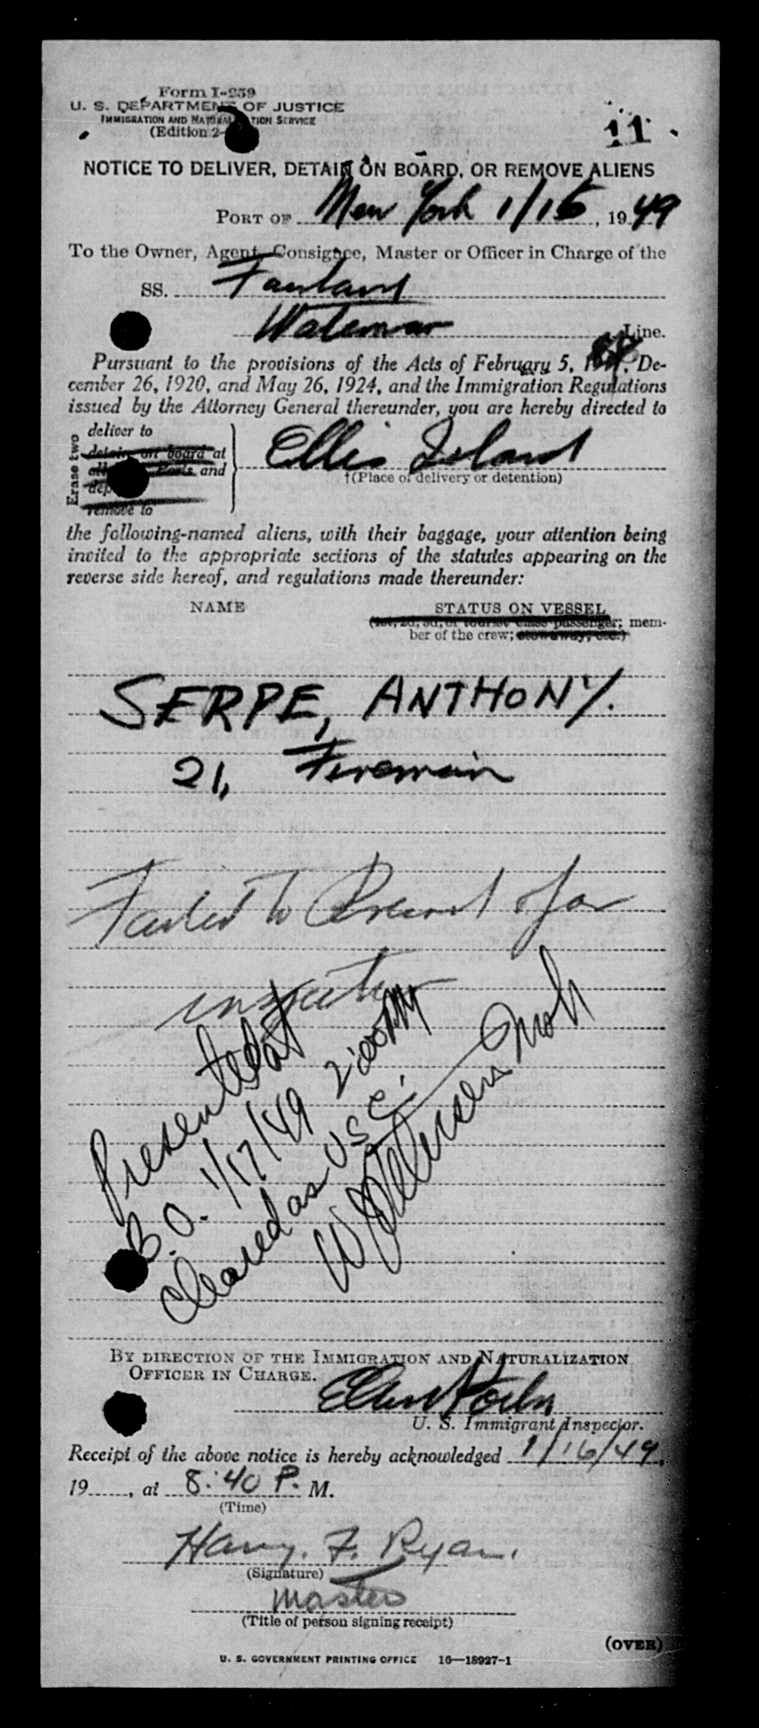 Form I-259
U. S. DEPARTMENT OF JUSTICE
IMMIGRATION AND NATURALIZATION SERVICE
(Edition 2-
11
NOTICE TO DELIVER, DETAIN ON BOARD, OR REMOVE ALIENS
PORT OF New York 1/16, 1949
To the Owner, Agent, Consignee, Master or Officer in Charge of the
SS. Fairland
Waterman Line.
Pursuant to the provisions of the Acts of February 5, De-
cember 26, 1920, and May 26, 1924, and the Immigration Regulations
issued by the Attorney General thereunder, you are hereby directed to
Erase two
deliver to
detain on board at
all Ports and
dep
remove to
Ellis Island
†(Place of delivery or detention)
the following-named aliens, with their baggage, your attention being
invited to the appropriate sections of the statutes appearing on the
reverse side hereof, and regulations made thereunder:
NAME STATUS ON VESSEL
(1st, 2d, 3d, or tourist class passenger; mem-
ber of the crew; stowaway, etc.)
SERPE, ANTHONY.
21, Fireman
Failed to Present for
inspection
Presented at
B.O. 1/17/49 2:00 PM
Cleared as USC.
BY DIRECTION OF THE IMMIGRATION AND NATURALIZATION
OFFICER IN CHARGE.
U. S. Immigrant Inspector.
Receipt of the above notice is hereby acknowledged 1/16/49,
19......, at 8:40 P. M.
(Time)
Harry. F. Ryan.
(Signature)
Master
(Title of person signing receipt)
(OVER)
U. S. GOVERNMENT PRINTING OFFICE 16—18927-1